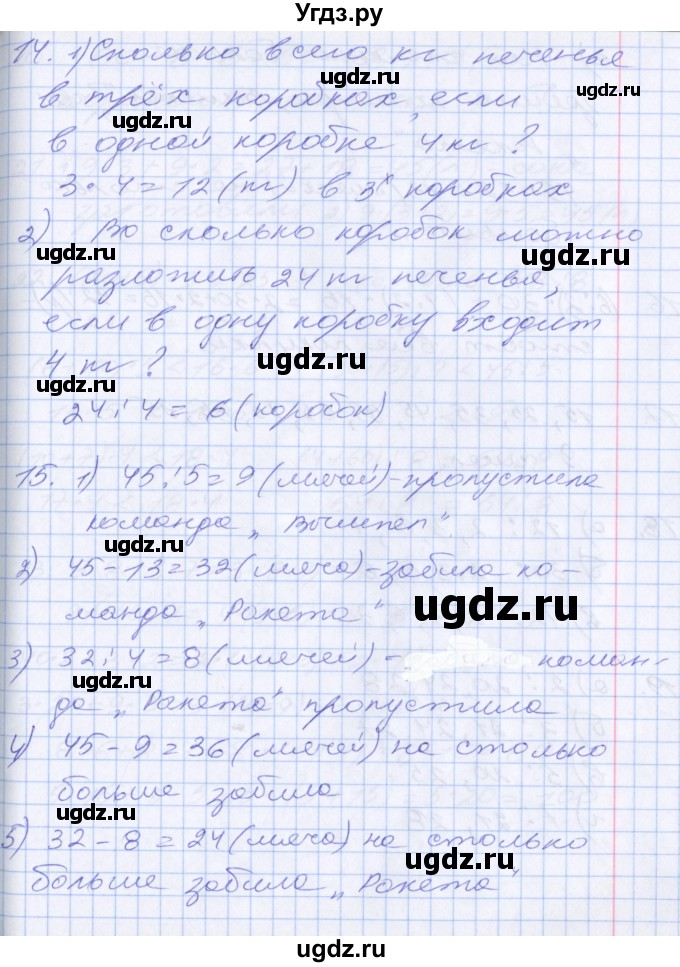 Угдз.ру
14. 1) Сколько всего кг печенья
ugdz.ru
ugdz.ru
в трёх коробках, если
ugdz.ru
в одной коробке 4 кг?
ugdz.ru
3 · 4 = 12 (кг) в 3х коробках
2) Во сколько коробок можно
ugdz.ru
ugdz.ru
разложить 24 кг печенья,
если в одну коробку входит
ugdz.ru
4 кг?
ugdz.ru
24 : 4 = 6 (коробок)
ugdz.ru
15. 1) 45 : 5 = 9 (мячей) - пропустила
команда „Вымпел"
ugdz.ru
2) 45 - 13 = 32 (мяча) - забила ко-
ugdz.ru
манда „Ракета"
3) 32 : 4 = 8 (мячей) - коман-
ugdz.ru
да „Ракета" пропустила
ugdz.ru
4) 45 - 9 = 36 (мячей) на столько
больше забила
ugdz.ru
5) 32 - 8 = 24 (мяча) на столько
ugdz.ru
больше забила „Ракета"
ugdz.ru